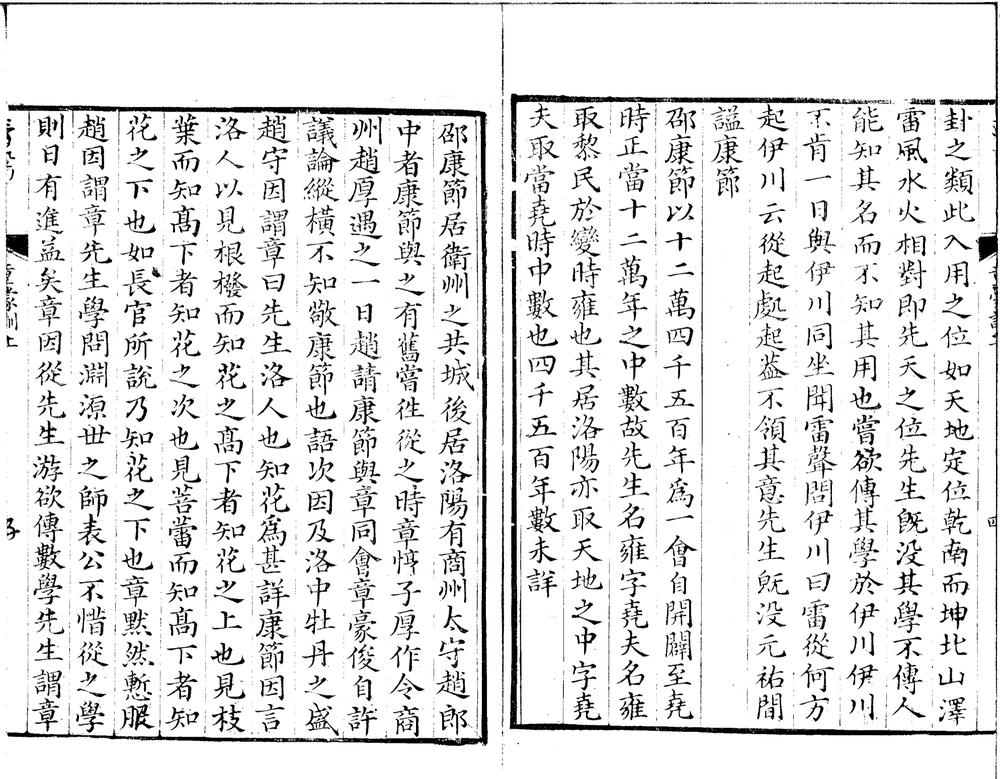 卦之類此入用之位如天地定位乾南而坤北山澤
雷風水火相對即先天之位先生旣没其學不傳人
能知其名而不知其用也嘗欲傳其學於伊川伊川
不肯一日與伊川同坐聞雷聲問伊川曰雷從何方
起伊川云從起處起葢不領其意先生旣没元祐間
謚康節
邵康節以十二萬四千五百年爲一會自開闢至堯
時正當十二萬年之中數故先生名雍字堯夫名雍
取黎民於變時雍也其居洛陽亦取天地之中字堯
夫取當堯時中數也四千五百年數未詳
四
邵康節居衛州之共城後居洛陽有商州太守趙郎
中者康節與之有舊嘗徃從之時章惇子厚作令商
州趙厚遇之一日趙請康節與章同會章豪俊自許
議論縱横不知敬康節也語次因及洛中牡丹之盛
趙守因謂章曰先生洛人也知花爲甚詳康節因言
洛人以見根橃而知花之髙下者知花之上也見枝
葉而知髙下者知花之次也見蓓蕾而知髙下者知
花之下也如長官所說乃知花之下也章黙然慙服
趙因謂章先生學問淵源世之師表公不惜從之學
則日有進益矣章因從先生游欲傳數學先生謂章